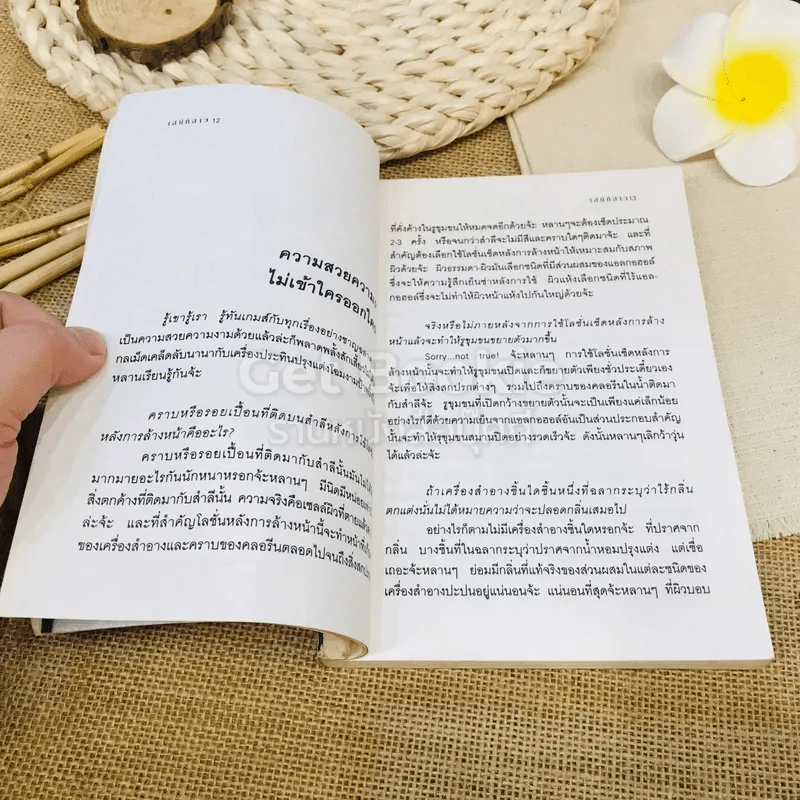 เสน่ห์สาว 12
ความสวยความ
ไม่เข้าใครออกใคร
รู้เขารู้เรา รู้ทันเกมส์กับทุกเรื่องอย่างชาญฉลาด
เป็นความสวยความงามด้วยแล้วล่ะก็พลาดพลั้งสักเสี้ยววินาที
กลเม็ดเคล็ดลับนานากับเครื่องประทินปรุงแต่งโฉมงาม
หลานเรียนรู้กันจ้ะ
คราบหรือรอยเปื้อนที่ติดบนสำลีหลังการใช้
หลังการล้างหน้าคืออะไร?
คราบหรือรอยเปื้อนที่ติดมากับสำลีนั้นมันไม่ได้
มากมายอะไรกันนักหนาหรอกจ้ะหลานๆ มีนิดมีหน่อย
สิ่งตกค้างที่ติดมากับสำลีนั้น ความจริงคือเซลล์ผิวที่ตายแล้ว
ล่ะจ้ะ และที่สำคัญโลชั่นหลังการล้างหน้านี้จะทำหน้าที่
ของเครื่องสำอางและคราบของคลอรีนตลอดไปจนถึงสิ่งสกปรก
เสน่ห์สาว 13
ที่คั่งค้างในรูขุมขนให้หมดจดอีกด้วยจ้ะ หลานๆจะต้องเช็ดประมาณ
2-3 ครั้ง หรือจนกว่าสำลีจะไม่มีสีและคราบใดๆติดมาจ้ะ และที่
สำคัญต้องเลือกใช้โลชั่นเช็ดหลังการล้างหน้าให้เหมาะสมกับสภาพ
ผิวด้วยจ้ะ ผิวธรรมดา-ผิวมันเลือกชนิดที่มีส่วนผสมของแอลกอฮอล์
ซึ่งจะให้ความรู้สึกเย็นซ่าหลังการใช้ ผิวแห้งเลือกชนิดที่ไร้แอล-
กอฮอล์ซึ่งจะไม่ทำให้ผิวหน้าแห้งไปกันใหญ่ด้วยจ้ะ
จริงหรือไม่ภายหลังจากการใช้โลชั่นเช็ดหลังการล้าง
หน้าแล้วจะทำให้รูขุมขนขยายตัวมากขึ้น
Sorry...not true! จ้ะหลานๆ การใช้โลชั่นเช็ดหลังการ
ล้างหน้านั้นจะทำให้รูขุมขนเปิดและก็ขยายตัวเพียงชั่วประเดี๋ยวเอง
จ้ะเพื่อให้สิ่งสกปรกต่างๆ รวมไปถึงคราบของคลอรีนในน้ำติดมา
กับสำลีจ้ะ รูขุมขนที่เปิดกว้างขยายตัวนั้นจะเป็นเพียงแค่เล็กน้อย
อย่างไรก็ดีด้วยความเย็นจากแอลกอฮอล์อันเป็นส่วนประกอบสำคัญ
นั้นจะทำให้รูขุมขนสมานปิดอย่างรวดเร็วจ้ะ ดังนั้นหลานๆเลิกว้าวุ่น
ได้แล้วล่ะจ้ะ
ถ้าเครื่องสำอางชิ้นใดชิ้นหนึ่งที่ฉลากระบุว่าไร้กลิ่น
ตกแต่งนั้นไม่ได้หมายความว่าจะปลอดกลิ่นเสมอไป
อย่างไรก็ตามไม่มีเครื่องสำอางชิ้นใดหรอกจ้ะ ที่ปราศจาก
กลิ่น บางชิ้นที่ในฉลากระบุว่าปราศจากน้ำหอมปรุงแต่ง แต่เชื่อ
เถอะจ้ะหลานๆ ย่อมมีกลิ่นที่แท้จริงของส่วนผสมในแต่ละชนิดของ
เครื่องสำอางปะปนอยู่แน่นอนจ้ะ แน่นอนที่สุดจ้ะหลานๆ ที่ผิวบอบ